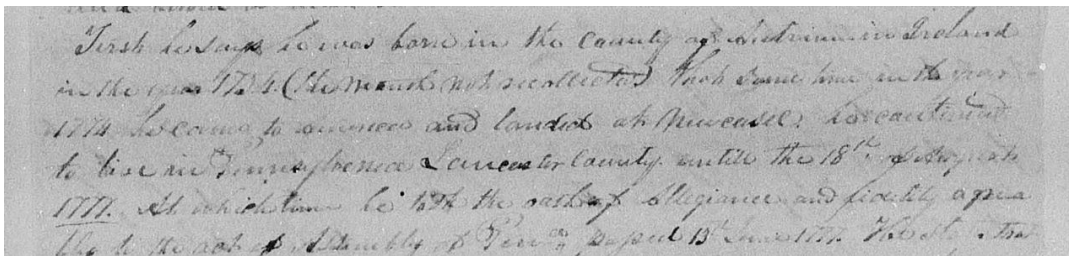 First he says he was born in the county of Antrim in Ireland
in the year 1754. (the month not recollected) that some time in the year
1774 he came to America and landed at Newcastle. he continued
to live in Pennsylvania Lancaster County. untill the 18th of August
1777. At which time he took the oath of Allegiance and fidelity agrea
bly to the act of Assembly of Penna. passed 13th June 1777. that